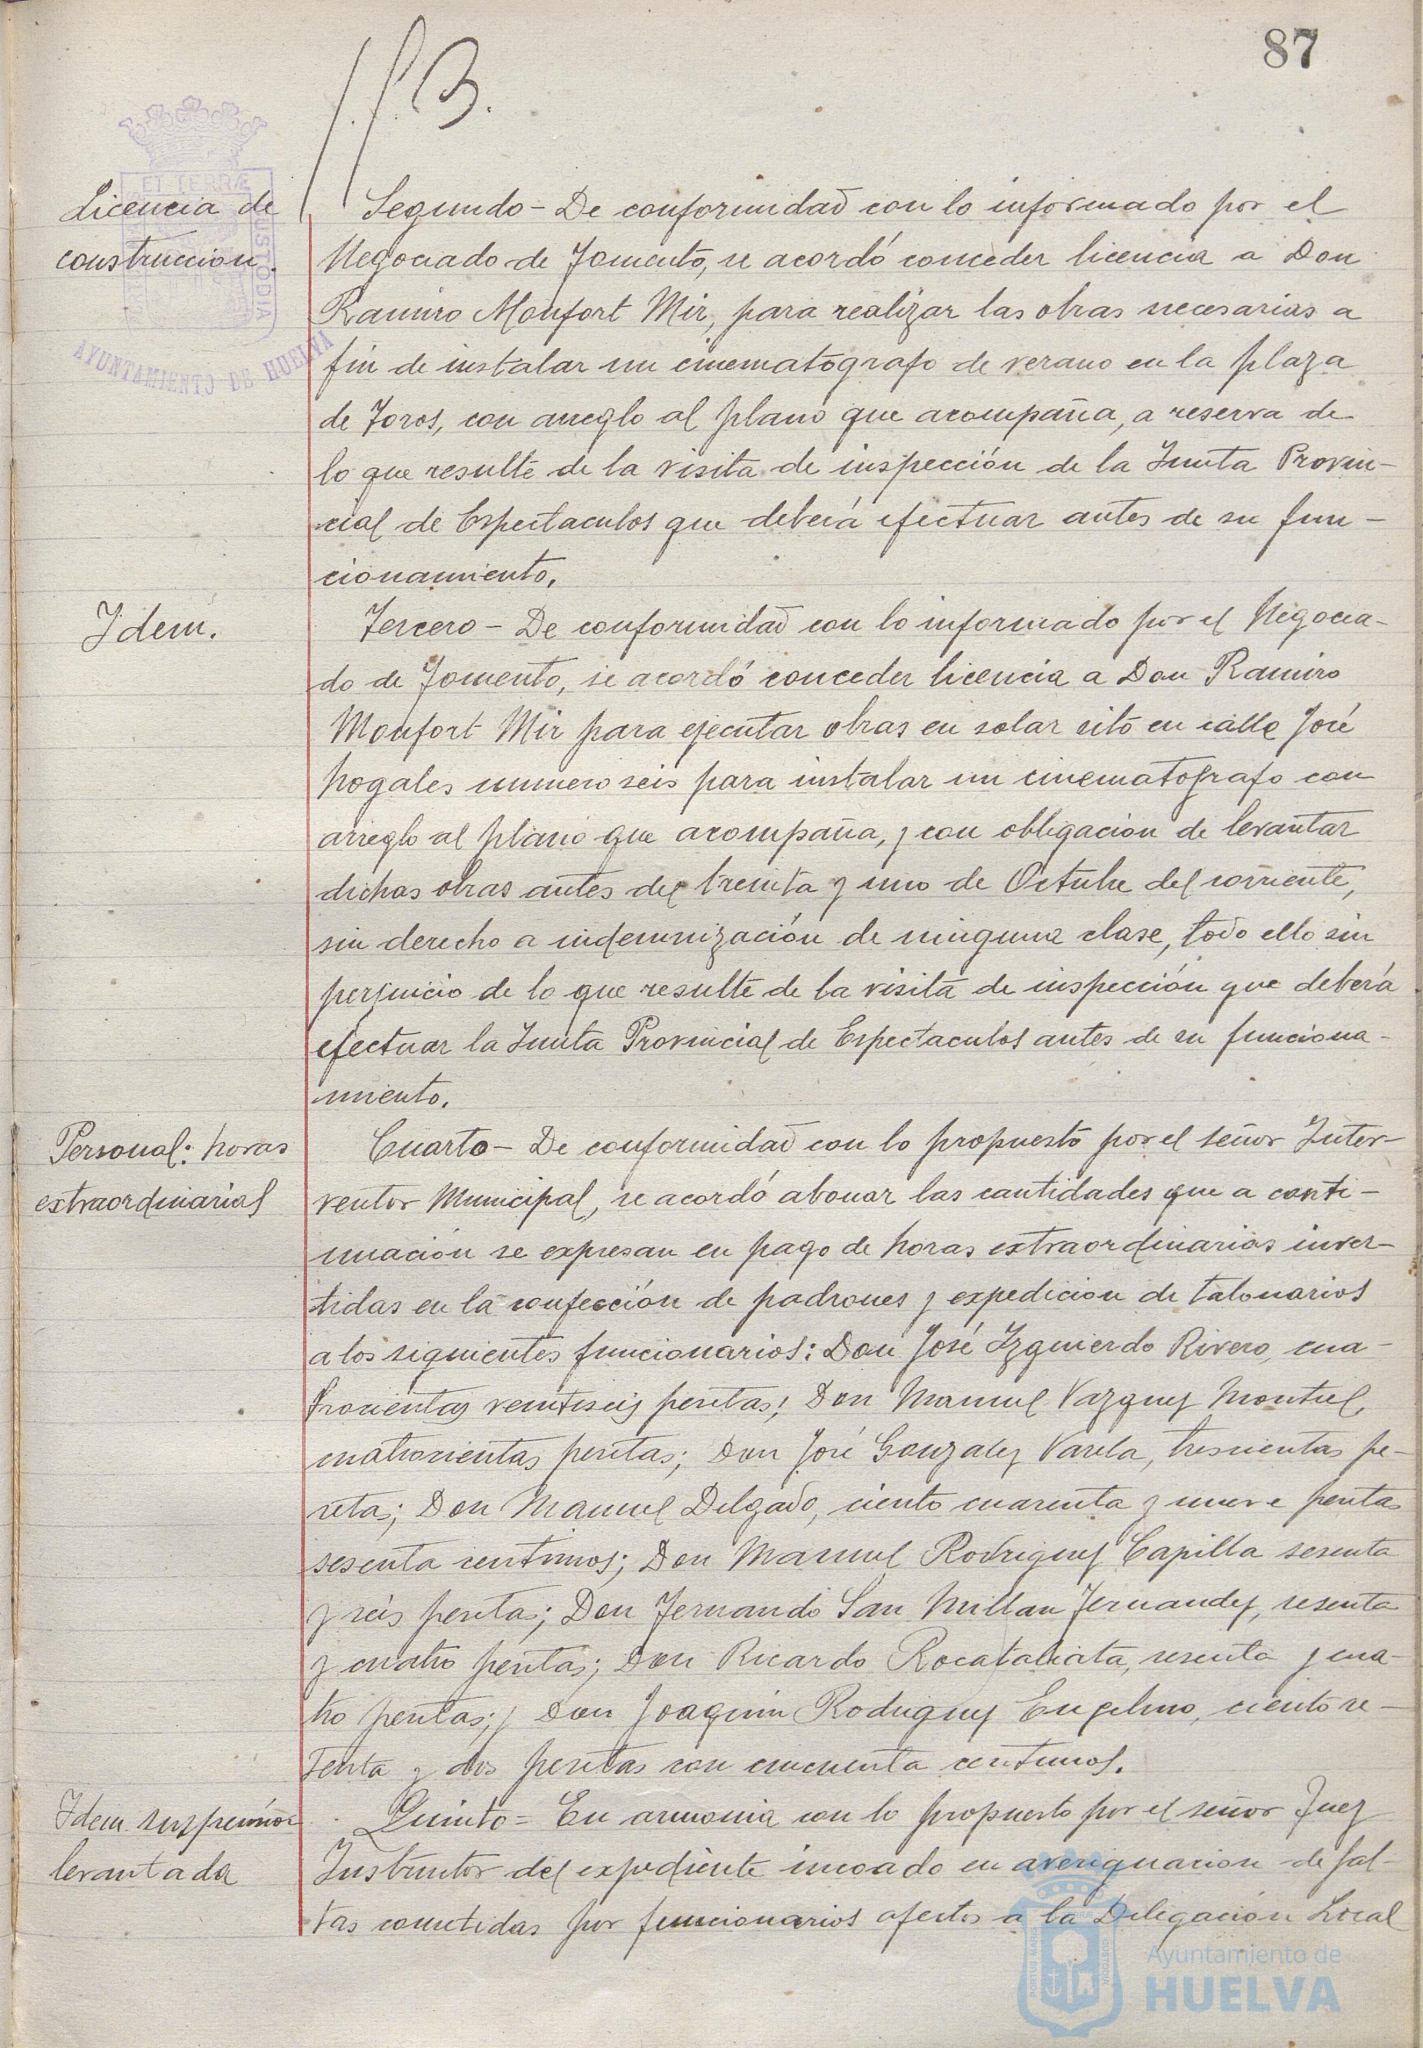 87
Licencia de
construccion.
Segundo - De conformidad con lo informado por el
Negociado de Fomento, se acordó conceder licencia a Don
Ramiro Monfort Mir, para realizar las obras necesarias a
fin de instalar un cinematógrafo de verano en la plaza
de Toros, con arreglo al plano que acompaña, a reserva de
lo que resulte de la visita de inspección de la Junta Provin-
cial de Espectaculos que deberá efectuar antes de su fun-
cionamiento.
Idem.
Tercero - De conformidad con lo informado por el Negocia-
do de Fomento, se acordó conceder licencia a Don Ramiro
Monfort Mir para ejecutar obras en solar sito en calle José
Nogales numero seis para instalar un cinematografo con
arreglo al plano que acompaña, y con obligacion de levantar
dichas obras antes del treinta y uno de Octubre del corriente,
sin derecho a indemnización de ninguna clase, todo ello sin
perjuicio de lo que resulte de la visita de inspección que deberá
efectuar la Junta Provincial de Espectaculos antes de su funciona-
miento.
Personal: horas
extraordinarias
Cuarto - De conformidad con lo propuesto por el señor Inter-
ventor Municipal, se acordó abonar las cantidades que a conti-
nuacion se expresan en pago de horas extraordinarias inver-
tidas en la confección de padrones y expedicion de talonarios
a los siguientes funcionarios: Don José Izquierdo Rivero, cua-
trocientas veintiseis pesetas; Don Manuel Vazquez Montiel,
cuatrocientas pesetas; Don José Gonzalez Varela, trescientas pe-
setas; Don Manuel Delgado, ciento cuarenta y nueve pesetas
sesenta centimos; Don Manuel Rodriguez Capilla sesenta
y seis pesetas; Don Fernando San Millan Fernandez, sesenta
y cuatro pesetas; Don Ricardo Rocatallata, sesenta y cua-
tro pesetas; y Don Joaquin Rodriguez Engelmo, ciento se-
tenta y dos pesetas con cincuenta centimos.
Idem suspensión
levantada
Quinto = En armonia con lo propuesto por el señor Juez
Instructor del expediente incoado en averiguacion de fal-
tas cometidas por funcionarios afectos a la Delegación Local
AYUNTAMIENTO DE HUELVA
ET TERRÆ
CUSTODIA
Ayuntamiento de
HUELVA